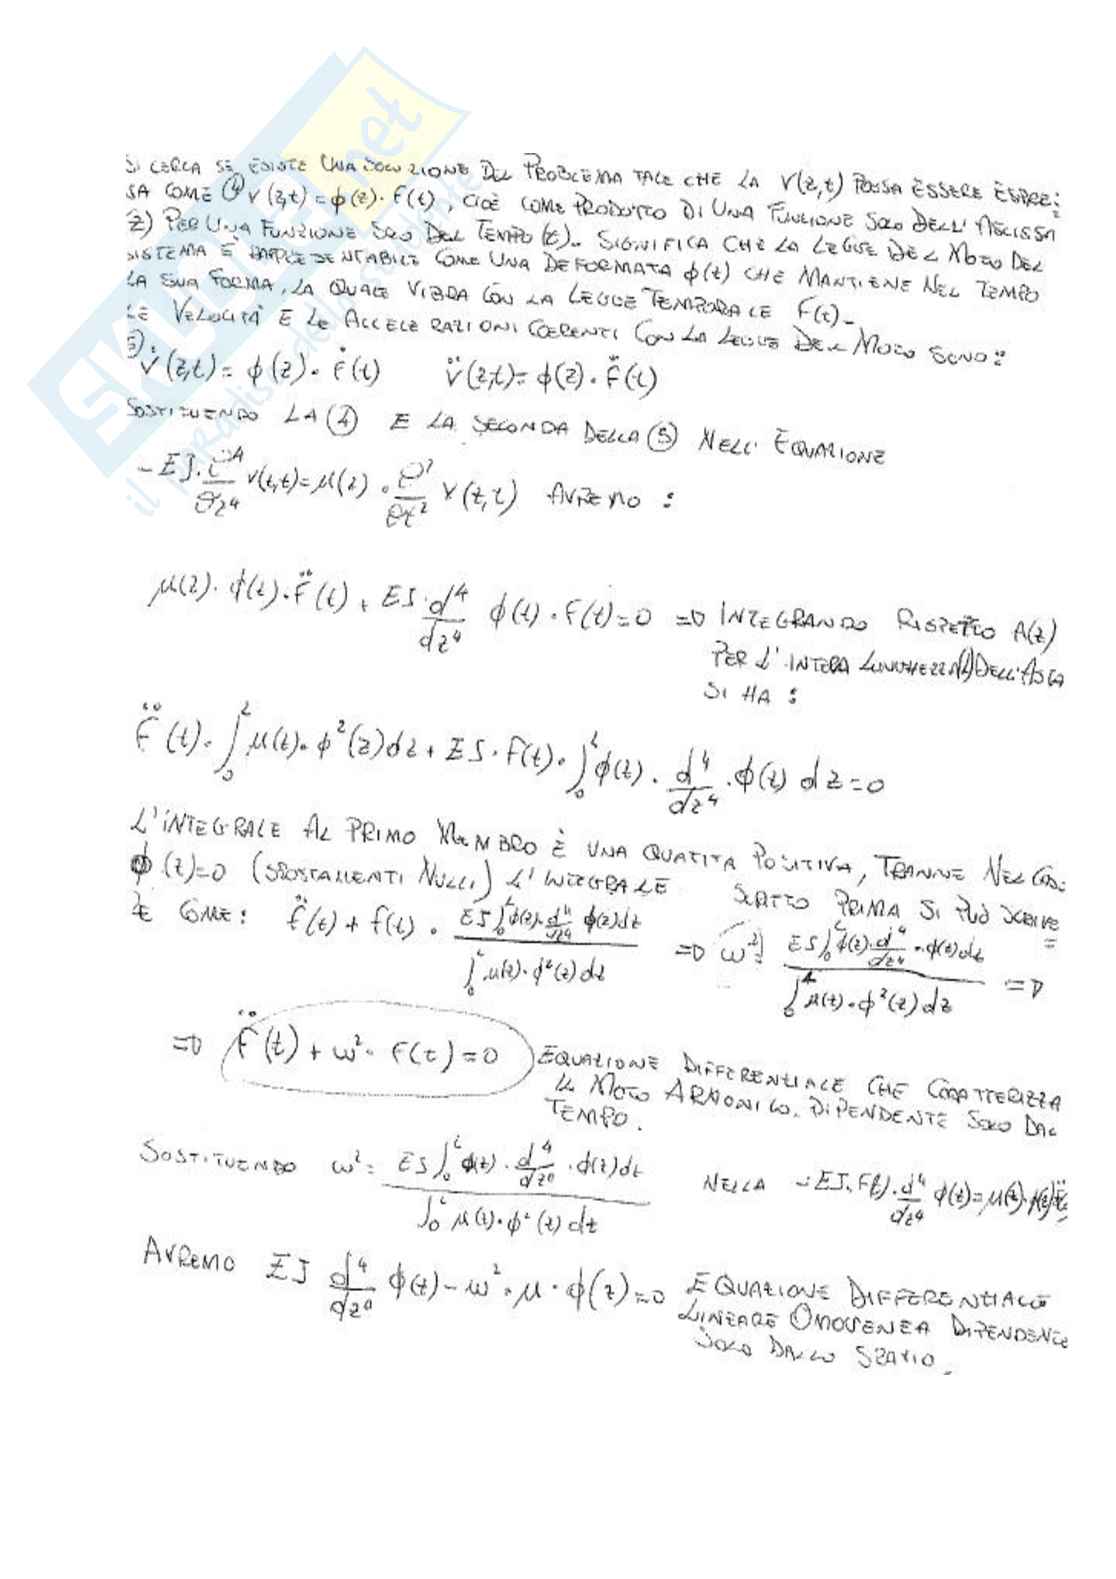 SI CERCA SE ESISTE UNA SOLUZIONE DEL PROBLEMA TALE CHE LA V(z,t) POSSA ESSERE ESPRES=
SA COME ④ V(z,t)=ϕ(z)·F(t), CIOÈ COME PRODOTTO DI UNA FUNZIONE SOLO DELL'ASCISSA
z) PER UNA FUNZIONE SOLO DEL TEMPO (t). SIGNIFICA CHE LA LEGGE DEL MOTO DEL
SISTEMA È COME UNA DEFORMATA ϕ(z) CHE MANTIENE NEL TEMPO
LA SUA FORMA, LA QUALE VIBRA CON LA LEGGE TEMPORALE F(t)-
LE VELOCITA' E LE ACCELERAZIONI COERENTI CON LA LEGGE DEL MOTO SONO:
5) V̇(z,t)= ϕ(z)·Ḟ(t) V̈(z,t)=ϕ(z)·F̈(t)
SOSTITUENDO LA ④ E LA SECONDA DELLA ⑤ NELL'EQUAZIONE
-EJ·∂⁴/∂z⁴ V(z,t)=μ(z)·∂²/∂t² V(z,t) AVREMO :
μ(z)·ϕ(z)·F̈(t) + EJ·d⁴/dz⁴ ϕ(z)·F(t)=0 => INTEGRANDO RISPETTO A(z)
PER L'INTERA LUNGHEZZA(L)DELL'ASTA
SI HA :
F̈(t)·∫₀ᴸ μ(z)·ϕ²(z)dz + EJ·F(t)·∫₀ᴸ ϕ(z)·d⁴/dz⁴·ϕ(z) dz=0
L'INTEGRALE AL PRIMO MEMBRO È UNA QUATITA POSITIVA, TRANNE NEL CASO
ϕ(z)=0 (SPOSTAMENTI NULLI) L'INTEGRALE SCRITTO PRIMA SI PUÒ SCRIVE=
RE COME: F̈(t) + F(t) · EJ∫₀ᴸϕ(z)·d⁴/dz⁴ ϕ(z)dz / ∫₀ᴸ μ(z)·ϕ²(z)dz => ω²= EJ∫₀ᴸϕ(z)·d⁴/dz⁴·ϕ(z)dz / ∫₀ᴸ μ(z)·ϕ²(z)dz =>
=> F̈(t) + ω²·F(t)=0 EQUAZIONE DIFFERENZIALE CHE CARATTERIZZA
IL MOTO ARMONICO. DIPENDENTE SOLO DAL
TEMPO.
SOSTITUENDO ω²= EJ∫₀ᴸ ϕ(z)·d⁴/dz⁴·ϕ(z)dz / ∫₀ᴸ μ(z)·ϕ²(z)dz NELLA -EJ·F(t)·d⁴/dz⁴ ϕ(z)=μ(z)·
AVREMO EJ d⁴/dz⁴ ϕ(z)-ω²·μ·ϕ(z)=0 EQUAZIONE DIFFERENZIALE
LINEARE OMOGENEA DIPENDENTE
SOLO DALLO SPAZIO.
SKUOLA.net
il paradiso dello studente